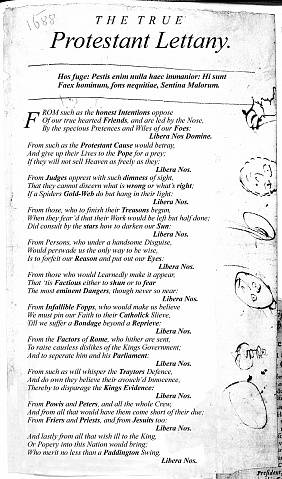 1688
THE TRUE
Protestant Lettany.
Hos fuge: Pestis enim nulla haec immanior: Hi sunt
Faex hominum, fons nequitiae, Sentina Malorum.
FROM such as the honest Intentions oppose
Of our true hearted Friends, and are led by the Nose,
By the specious Pretences and Wiles of our Foes:
Libera Nos Domine.
From such as the Protestant Cause would betray,
And give up their Lives to the Pope for a prey;
If they will not sell Heaven as freely as they:
Libera Nos.
From Judges opprest with such dimness of sight,
That they cannot discern what is wrong or what's right;
If a Spiders Gold-Web do but hang in their light:
Libera Nos.
From those, who to finish their Treasons begun,
When they fear'd that their Work would be left but half done;
Did consult by the stars how to darken our Sun:
Libera Nos.
From Persons, who under a handsome Disguise,
Would perswade us the only way to be wise,
Is to forfeit our Reason and put out our Eyes:
Libera Nos.
From those who would Learnedly make it appear,
That 'tis Factious either to shun or to fear
The most eminent Dangers, though never so near:
Libera Nos.
From Infallible Fopps, who would make us believe
We must pin our Faith to their Catholick Slieve,
Till we suffer a Bondage beyond a Reprieve:
Libera Nos.
From the Factors of Rome, who hither are sent,
To raise causless dislikes of the Kings Government;
And to seperate him and his Parliament:
Libera Nos.
From such as will whisper the Traytors Defence,
And do own they believe their arouch'd Innocence,
Thereby to disparage the Kings Evidence:
Libera Nos.
From Powis and Peters, and all the whole Crew,
And from all that would have them come short of their due;
From Friers and Priests, and from Jesuits too:
Libera Nos.
And lastly from all that wish ill to the King,
Or Popery into this Nation would bring;
Who merit no less than a Paddington Swing,
Libera Nos.
President,